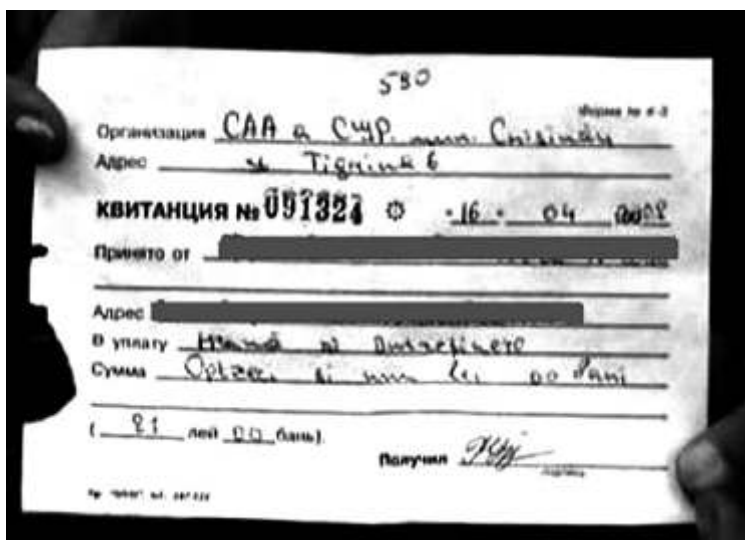 530
Форма № К-3
Организация CAA a CMP. mun. Chisinau
Адрес Tighina 6
КВИТАНЦИЯ № 091324 16 04 2008
Принято от
Адрес
В уплату Hrană și întreținere
Сумма Optzeci și unu lei 00 bani
( 81 лей 00 бань).
Получил
подпись